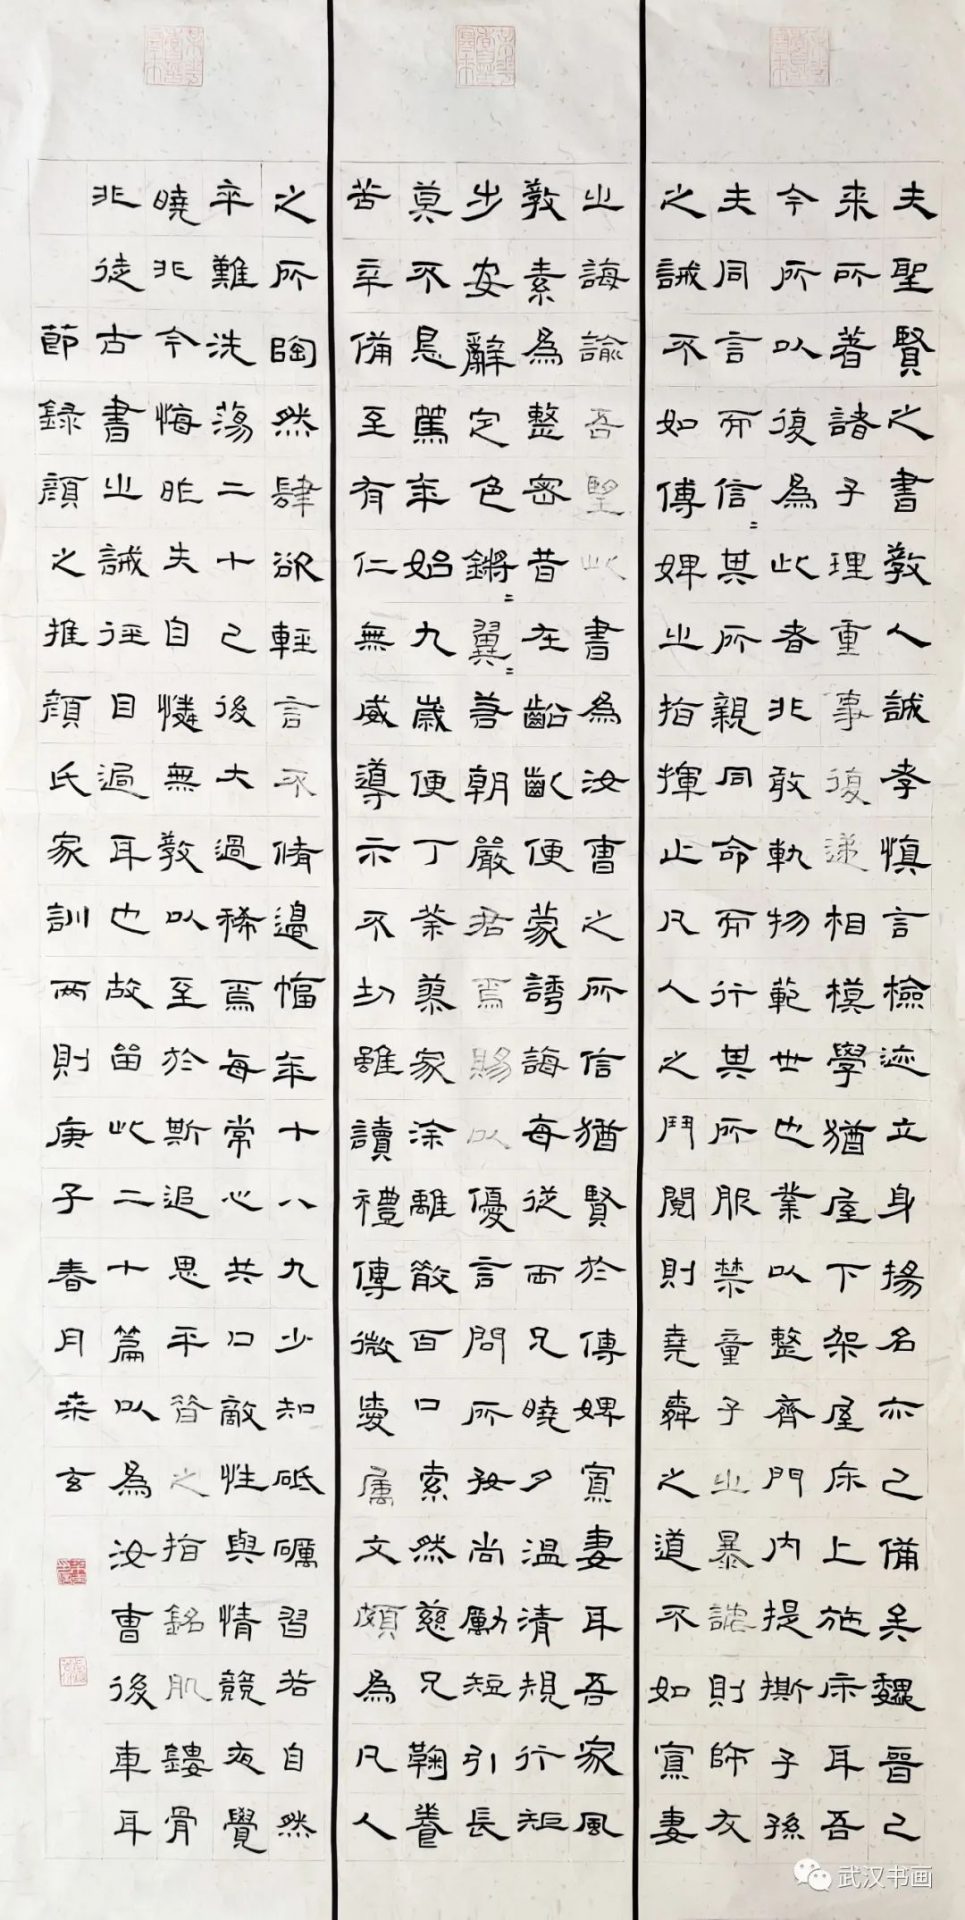 夫聖賢之書教人誠孝慎言檢迹立身揚名亦已備矣魏晉已
來所著諸子理重事復遞相模學猶屋下架屋床上施床耳吾
今所以復為此者非敢軌物範世也業以整齊門內提撕子孫
夫同言而信=其所親同命而行其所服禁童子之暴謔則師友
之誡不如傅婢之指揮止凡人之鬥鬩則堯舜之道不如寡妻
之誨諭吾望此書為汝曹之所信猶賢於傅婢寡妻耳吾家風
教素為整密昔在齠齔便蒙誘誨每從兩兄曉夕溫清規行矩
步安辭定色鏘=翼=若朝嚴君焉賜以優言問所好尚勵短引長
莫不懇篤年始九歲便丁荼蓼家塗離散百口索然慈兄鞠養
苦辛備至有仁無威導示不切雖讀禮傳微愛屬文頗為凡人
之所陶然肆欲輕言不脩邊幅年十八九少知砥礪習若自然
卒難洗蕩二十已後大過稀焉每常心共口敵性與情競夜覺
曉非今悔昨失自憐無教以至於斯追思平昔之指銘肌鏤骨
非徒古書之誡徑目過耳也故留此二十篇以為汝曹後車耳
節録顏之推顏氏家訓两則庚子春月玄
武汉书画